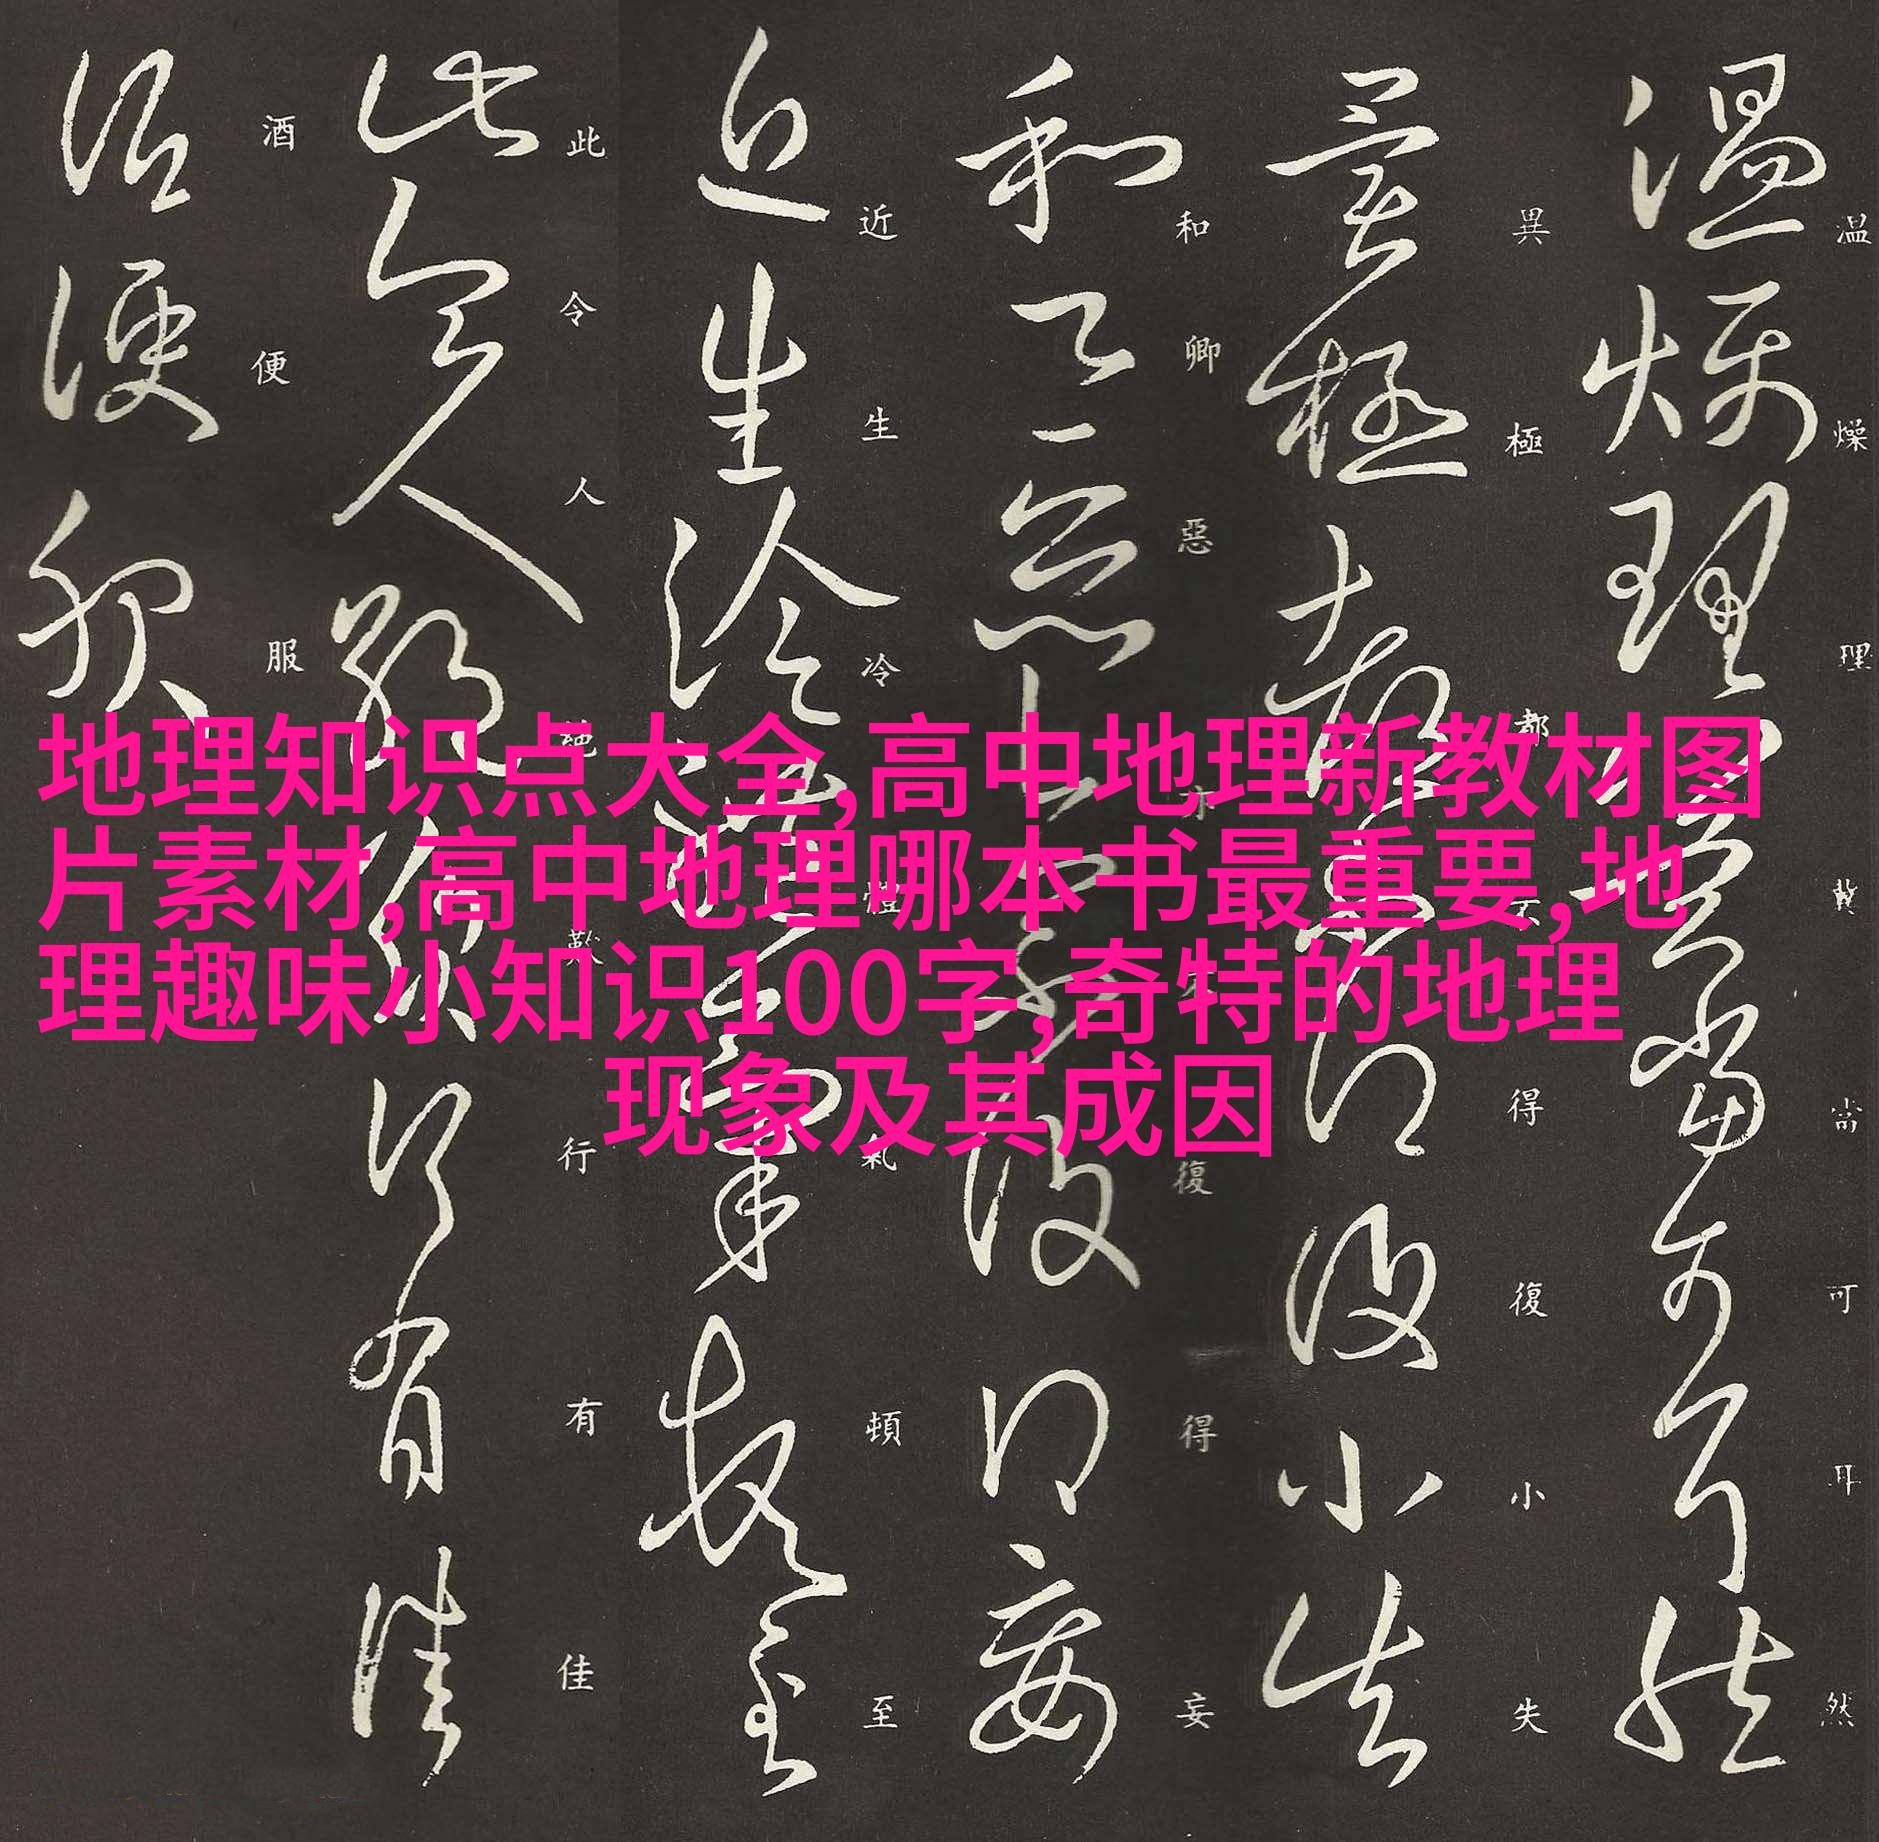 地理知识点大全,高中地理新教材图
片素材,高中地理哪本书最重要,地
理趣味小知识100字,奇特的地理
现象及其成因
温燥理冀當可耳然
異極都不得復小失
和卿惡亦復得妄
近生冷體氣頓至
此令人絕歎行有佳
酒便服